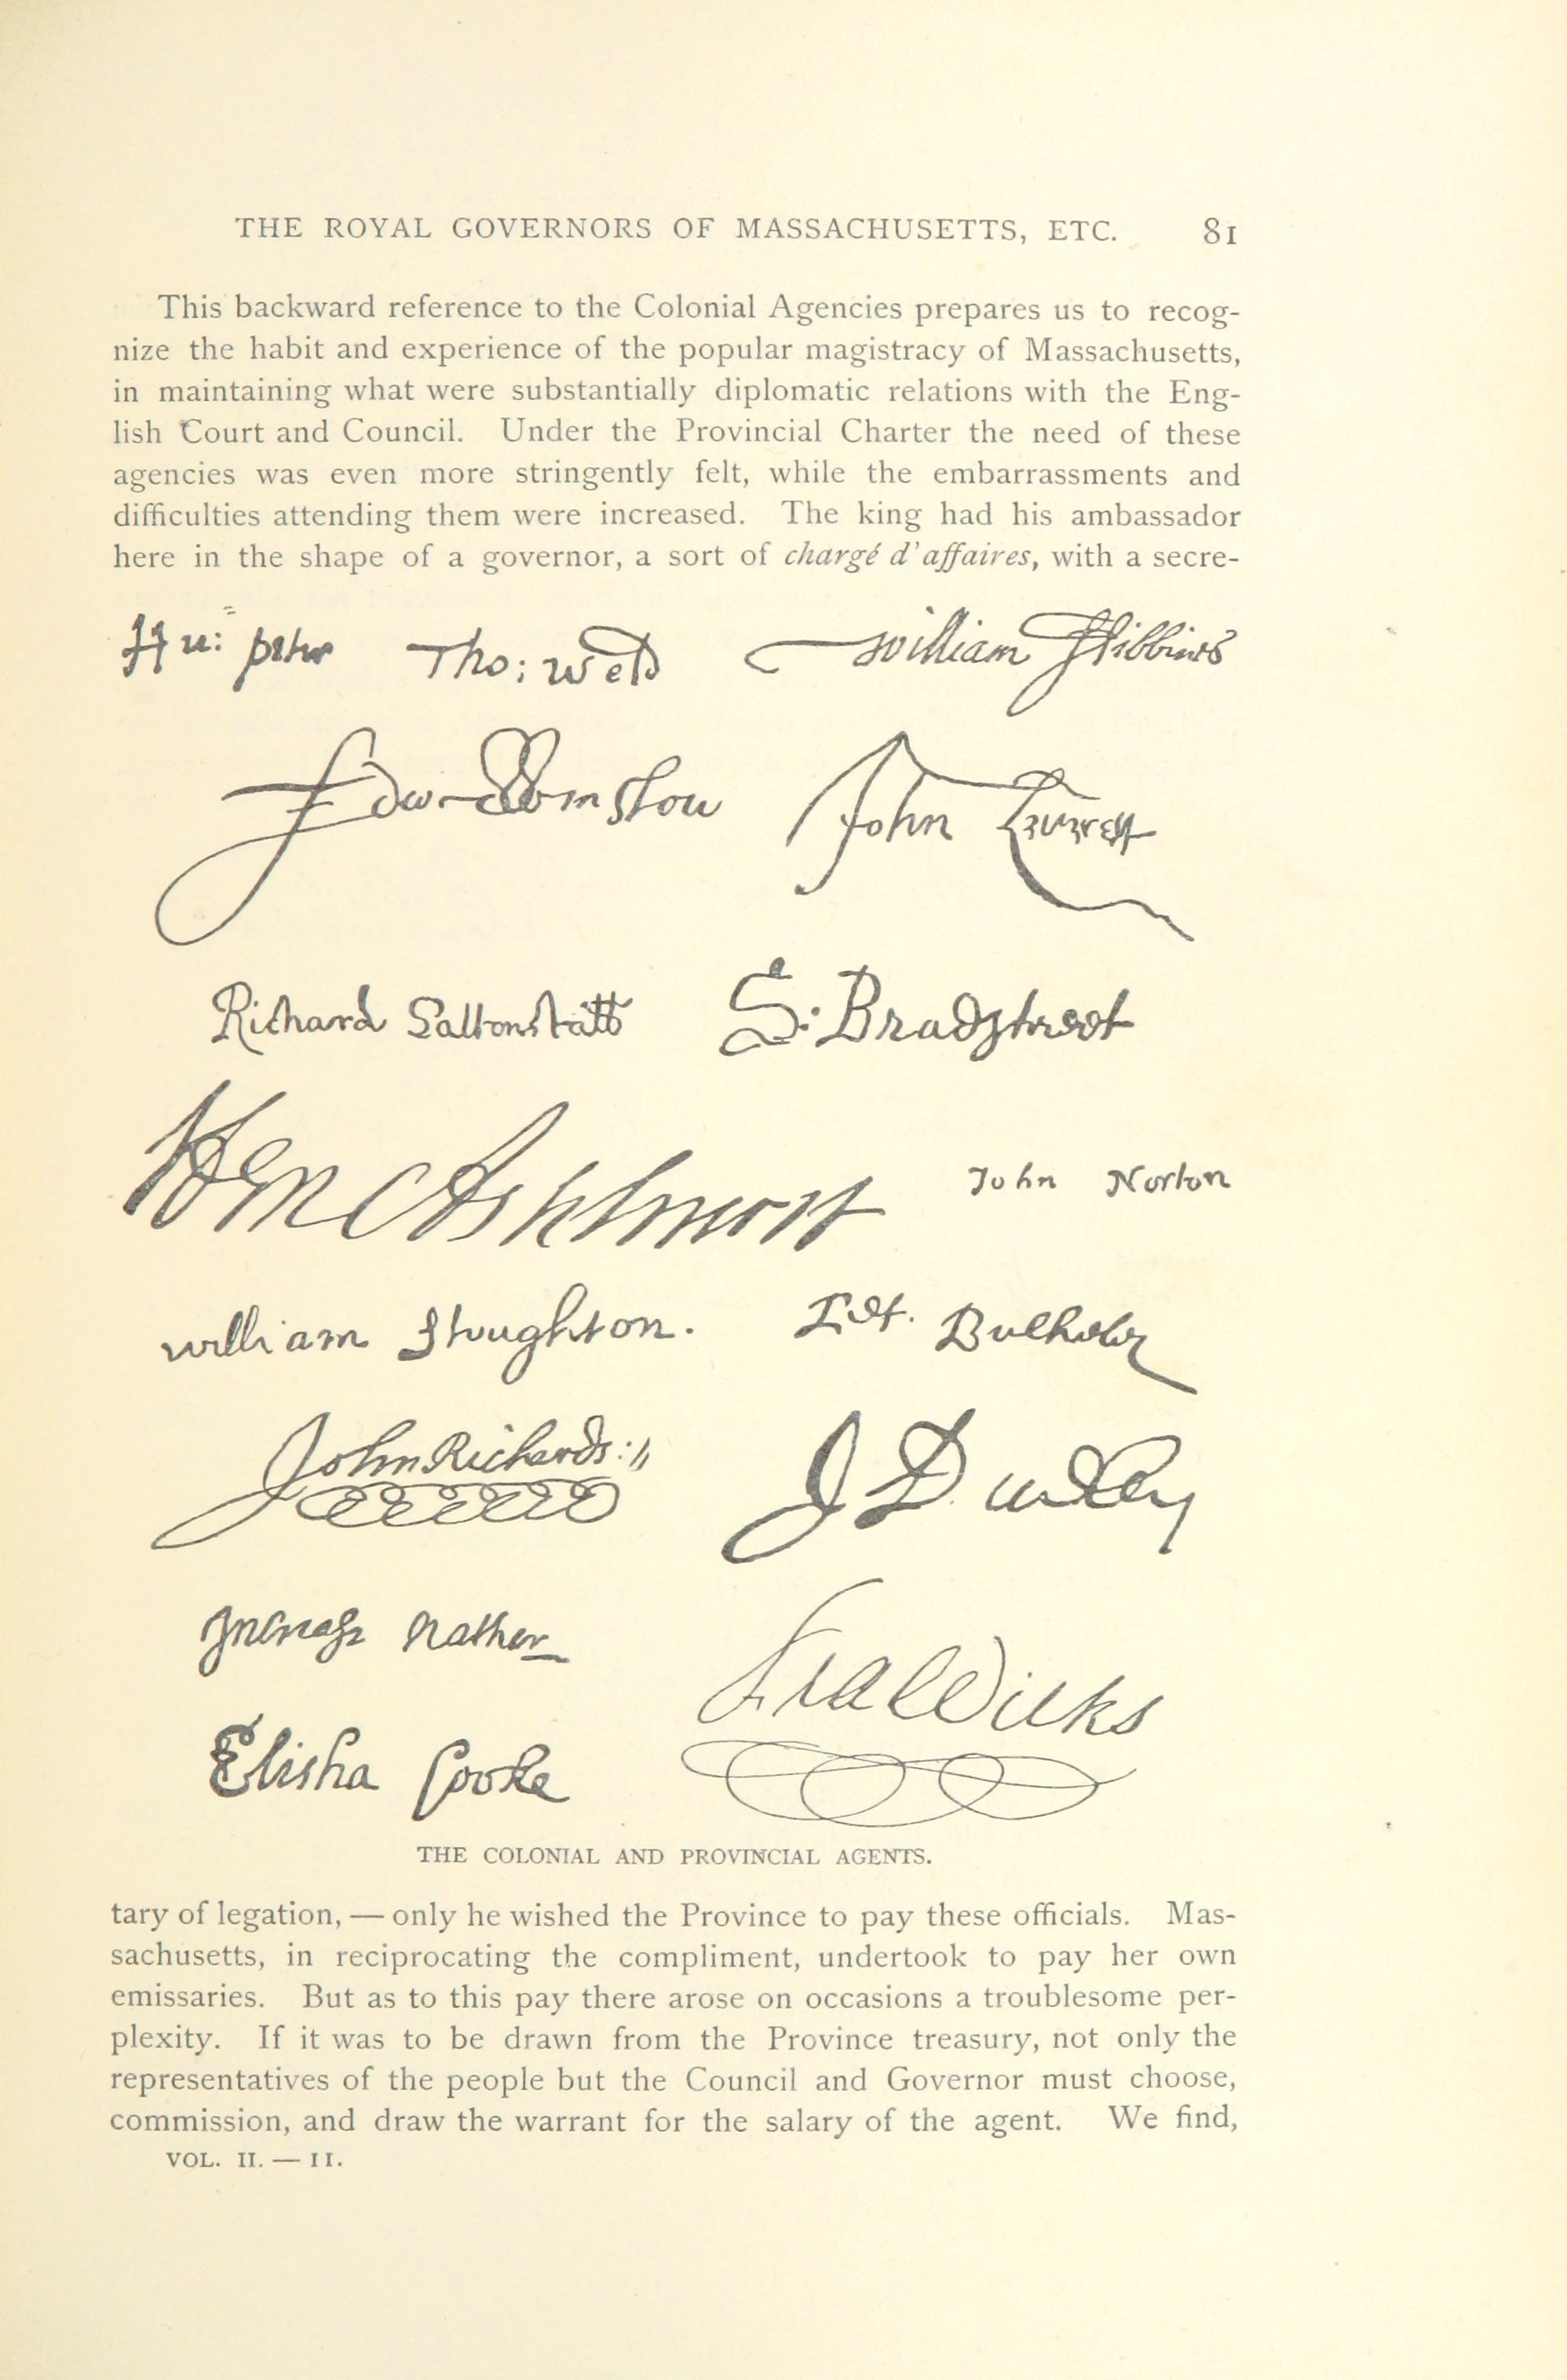 THE ROYAL GOVERNORS OF MASSACHUSETTS, ETC. 81
This backward reference to the Colonial Agencies prepares us to recog-
nize the habit and experience of the popular magistracy of Massachusetts,
in maintaining what were substantially diplomatic relations with the Eng-
lish Court and Council. Under the Provincial Charter the need of these
agencies was even more stringently felt, while the embarrassments and
difficulties attending them were increased. The king had his ambassador
here in the shape of a governor, a sort of chargé d'affaires, with a secre-
Hu: peter Tho: Weld William Hibbins
Edw Winslow John Leverett
Richard Saltonstall S: Bradstreet
Hen Ashhurst John Norton
william Stoughton. Pet. Bulkeley
John Richards: J Dudley
Increase Mather
Fra Wilks
Elisha Cooke
THE COLONIAL AND PROVINCIAL AGENTS.
tary of legation, — only he wished the Province to pay these officials. Mas-
sachusetts, in reciprocating the compliment, undertook to pay her own
emissaries. But as to this pay there arose on occasions a troublesome per-
plexity. If it was to be drawn from the Province treasury, not only the
representatives of the people but the Council and Governor must choose,
commission, and draw the warrant for the salary of the agent. We find,
VOL. II. — II.